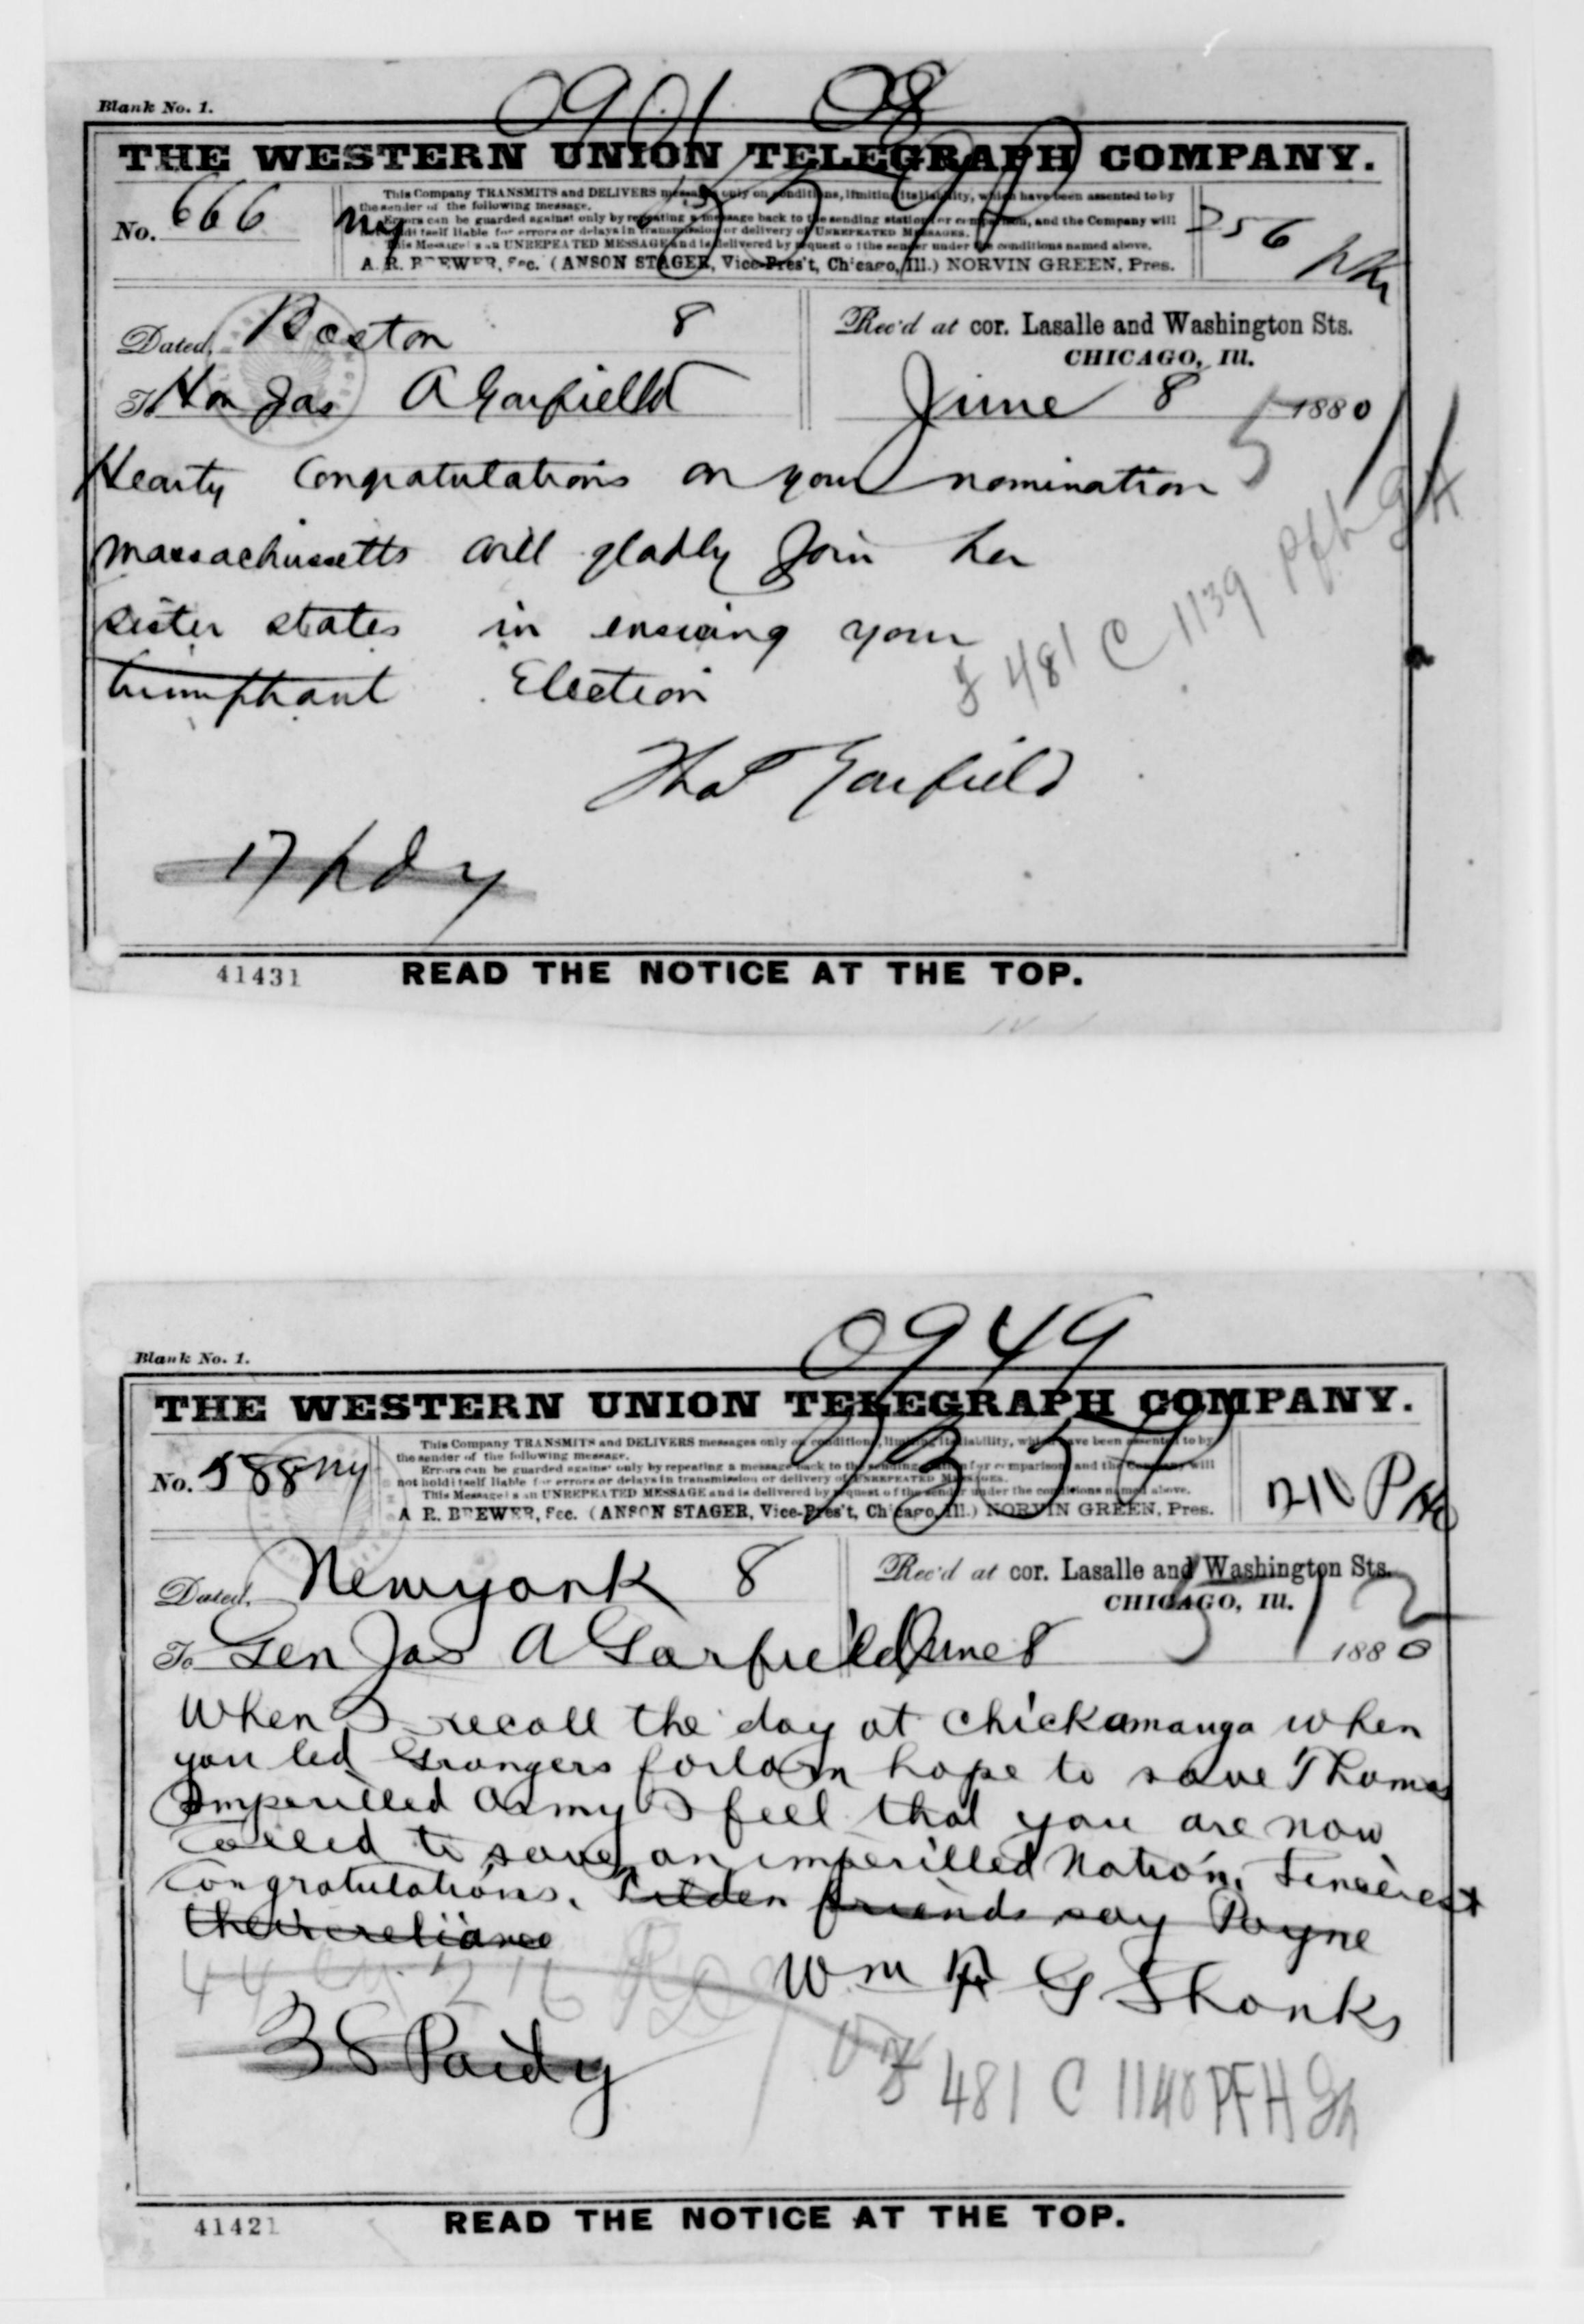 0901 08
Blank No. 1.
THE WESTERN UNION TELEGRAPH COMPANY.
This Company TRANSMITS and DELIVERS messages only on conditions, limiting its liability, which have been assented to by
the sender of the following message.
Errors can be guarded against only by repeating a message back to the sending station for comparison, and the Company will
not hold itself liable for errors or delays in transmission or delivery of UNREPEATED MESSAGES.
This Message is an UNREPEATED MESSAGE and is delivered by request of the sender under the conditions named above.
A. R. BREWER, Sec. (ANSON STAGER, Vice-Pres't, Chicago, Ill.) NORVIN GREEN, Pres.
No. 666 ny
256
Dated, Boston 8
Rec'd at cor. Lasalle and Washington Sts.
CHICAGO, Ill.
To Hon Jas A Garfield
June 8 1880
Hearty Congratulations on your nomination
Massachusetts will gladly Join her
sister states in ensuing your
triumphant Election
Thos Garfield
17 pdy
481 C 1139
41431 READ THE NOTICE AT THE TOP.
0949
Blank No. 1.
THE WESTERN UNION TELEGRAPH COMPANY.
This Company TRANSMITS and DELIVERS messages only on conditions, limiting its liability, which have been assented to by
the sender of the following message.
Errors can be guarded against only by repeating a message back to the sending station for comparison, and the Company will
not hold itself liable for errors or delays in transmission or delivery of UNREPEATED MESSAGES.
This Message is an UNREPEATED MESSAGE and is delivered by request of the sender under the conditions named above.
A. R. BREWER, Sec. (ANSON STAGER, Vice-Pres't, Chicago, Ill.) NORVIN GREEN, Pres.
No. 588 ny
Dated, Newyork 8
Rec'd at cor. Lasalle and Washington Sts.
CHICAGO, Ill.
512
To Gen Jas A Garfield June 8 1880
When I recall the day at Chickamauga when
you led Grangers forlorn hope to save Thomas
Imperilled Army I feel that you are now
Called to save an imperilled Nation. Sincerest
Congratulations. Tilden friends say Payne
their reliance
Wm F G Shanks
38 Paidy
481 C 1140 PFH Gh
41421 READ THE NOTICE AT THE TOP.